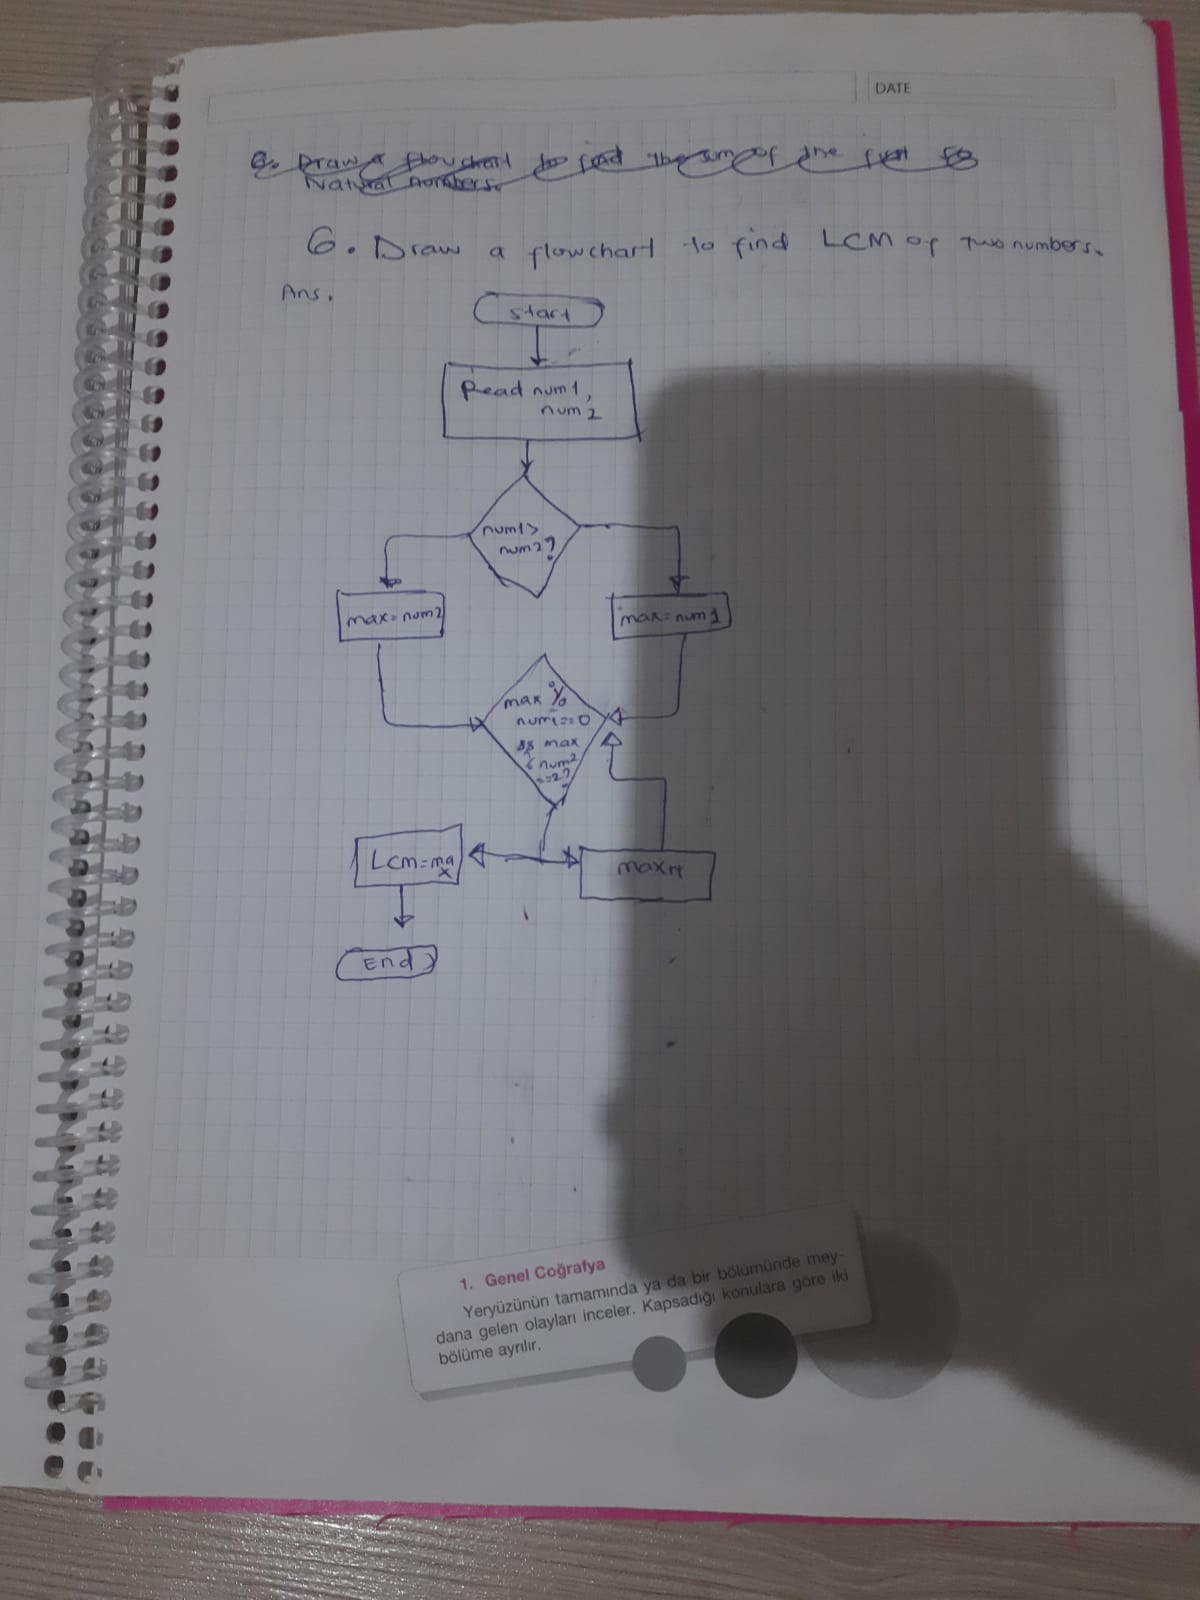 DATE
Q. Draw a flowchart to find the sum of the first 50
Natural numbers.
6. Draw a flowchart to find LCM of two numbers.
Ans.
start
Read num1,
num2
num1>
num2?
max=num2
max=num1
max %
num1==0
&& max
% num2
==2?
Lcm=ma
x
max++
End
1. Genel Coğrafya
Yeryüzünün tamamında ya da bir bölümünde mey-
dana gelen olayları inceler. Kapsadığı konulara göre iki
bölüme ayrılır.